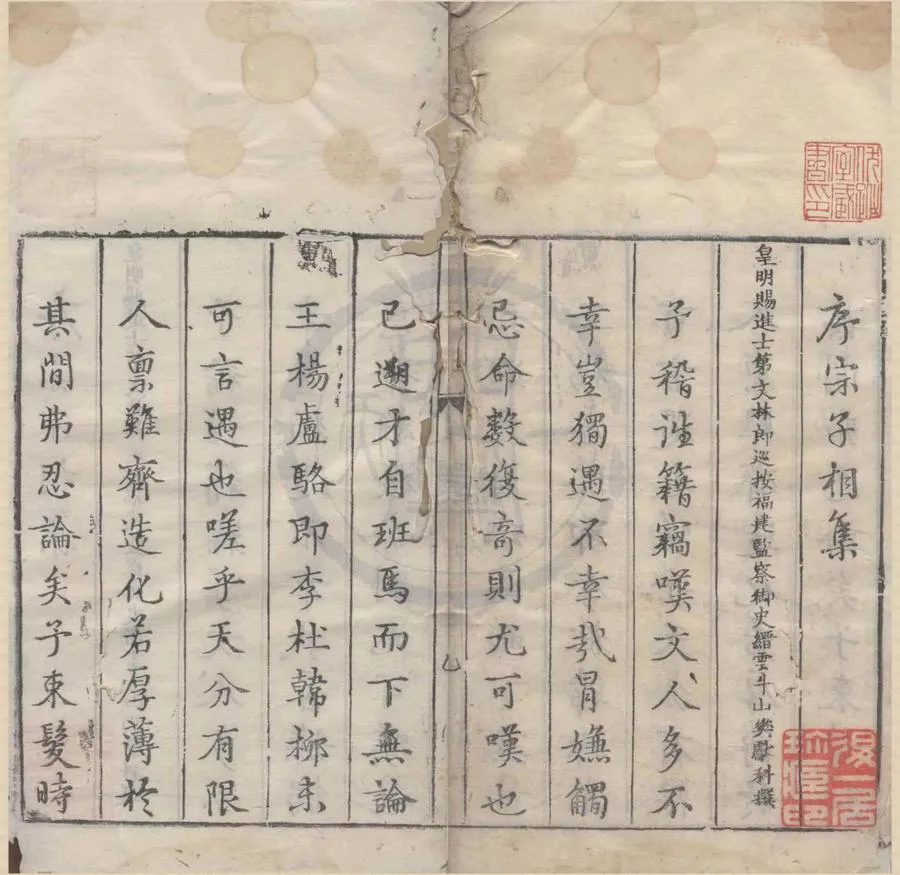 序宗子相集
皇明賜進士第文林郎巡按福建監察御史縉雲斗山樊獻科撰
予稽往籍竊嘆文人多不
幸豈獨遇不幸哉冒嫌觸
忌命數復奇則尤可嘆也
已遡才自班馬而下無論
王楊盧駱即李杜韓柳未
可言遇也嗟乎天分有限
人禀難齊造化若厚薄於
其間弗忍論矣予束髮時